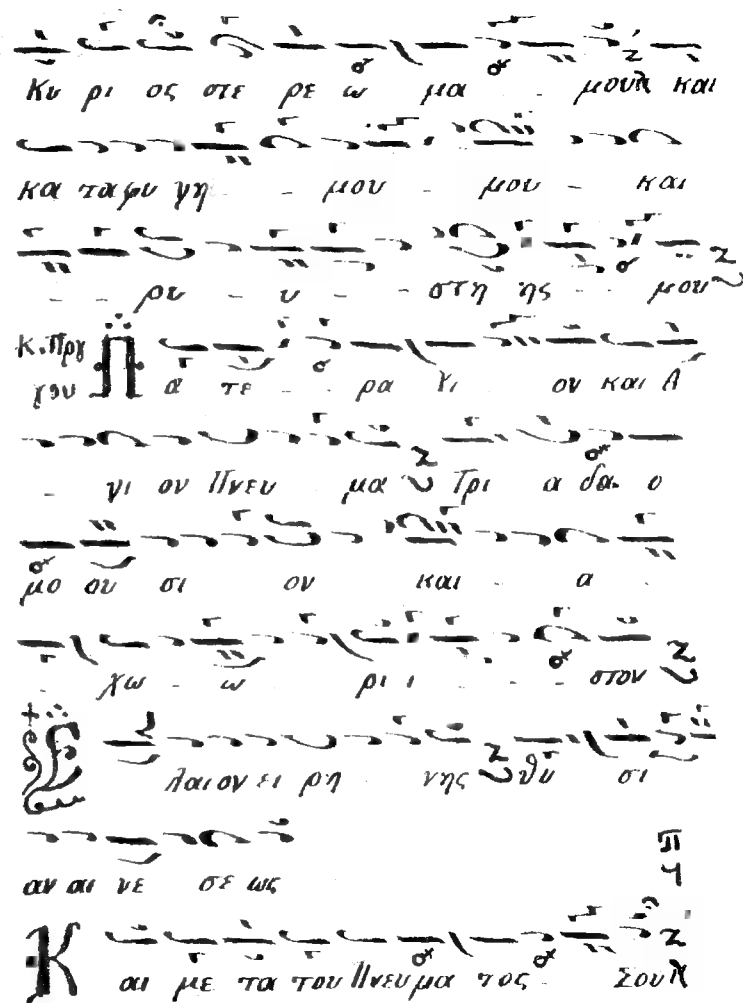 Κυ ρι ος στε ρε ω μα - - μου και
κα ταφυ γη - - μου - μου - και
- - ρυ - υ - - στη ης - - μου
Κ. Πρχ Πα τε - - ρα γι ον και Α
χου
- γι ον Πνευ μα Τρι α δα. ο
μο ου σι ον και - α -
- χω - ω ρι ι - - - στον
Ελαιον ει ρη - νης θυ σι
αν αι νε σε ως
Και με τα του Πνευμα τος - Σου